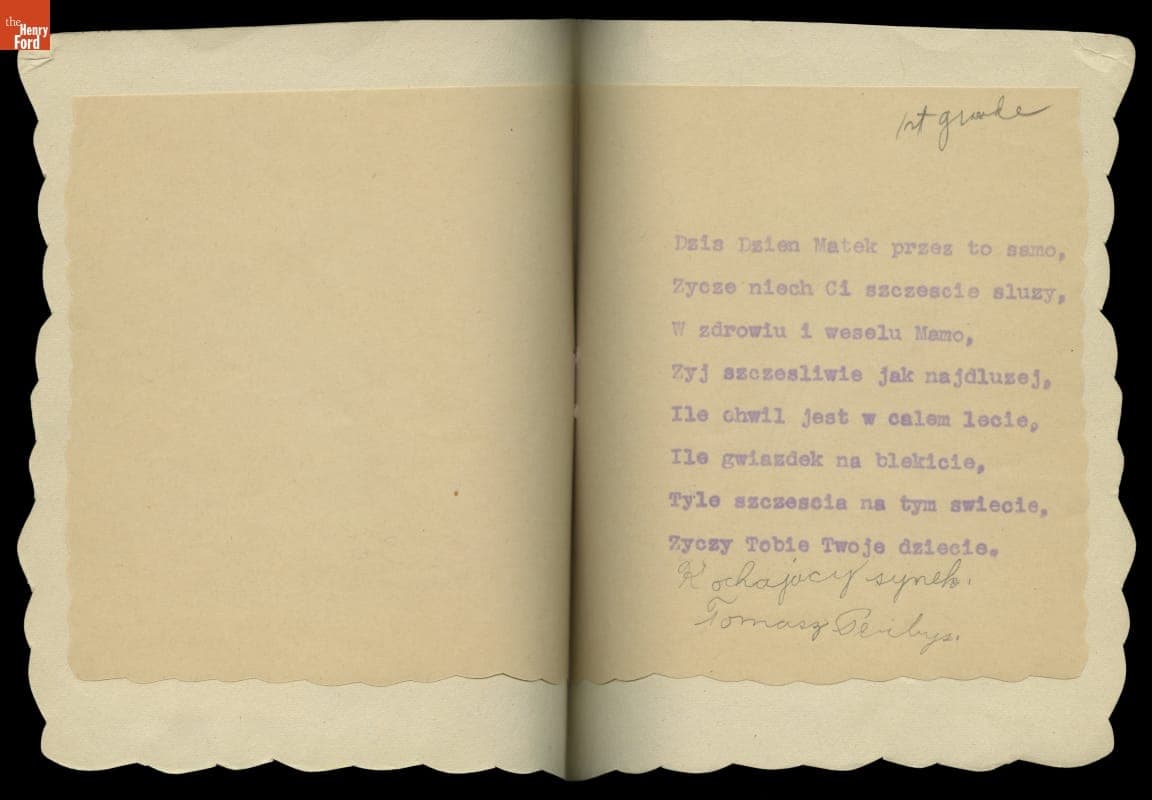 the
Henry
Ford
1st grade
Dzis Dzien Matek przez to samo,
Zycze niech Ci szczescie sluzy,
W zdrowiu i weselu Mamo,
Zyj szczesliwie jak najdluzej,
Ile chwil jest w calem lecie,
Ile gwiazdek na blekicie,
Tyle szczescia na tym swiecie,
Zyczy Tobie Twoje dziecie.
Kochajacy synek.
Tomasz